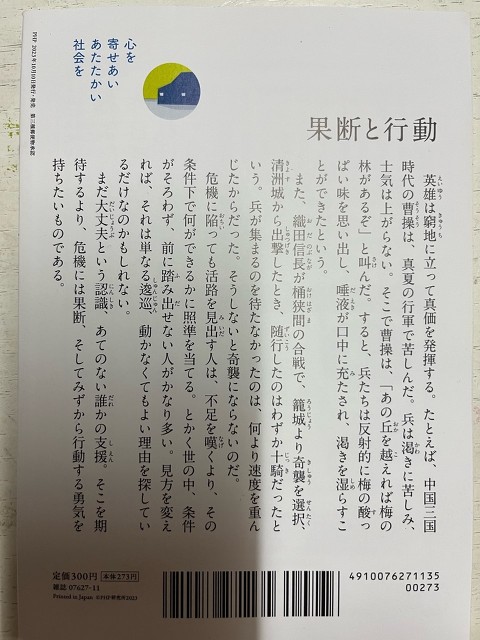 果断と行動
英雄は窮地に立って真価を発揮する。たとえば、中国三国
時代の曹操は、真夏の行軍で苦しんだ。兵は渇きに苦しみ、
士気は上がらない。そこで曹操は、「あの丘を越えれば梅の
林があるぞ」と叫んだ。すると、兵たちは反射的に梅の酸っ
ぱい味を思い出し、唾液が口中に充たされ、渇きを湿らすこ
とができたという。
また、織田信長が桶狭間の合戦で、籠城より奇襲を選択、
清洲城から出撃したとき、随行したのはわずか十騎だったと
いう。兵が集まるのを待たなかったのは、何より速度を重ん
じたからだった。そうしないと奇襲にならないのだ。
危機に陥っても活路を見出す人は、不足を嘆くより、その
条件下で何ができるかに照準を当てる。とかく世の中、条件
がそろわず、前に踏み出せない人がかなり多い。見方を変え
れば、それは単なる逡巡、動かなくてもよい理由を探してい
るだけなのかもしれない。
まだ大丈夫という認識、あてのない誰かの支援。そこを期
待するより、危機には果断、そしてみずから行動する勇気を
持ちたいものである。
心を
寄せあい
あたたかい
社会を
PHP 2023年10月10日発行・発売 第三種郵便物承認
定価300円 本体273円
雑誌 07627-11
Printed in Japan ©PHP研究所2023
4910076271135
00273